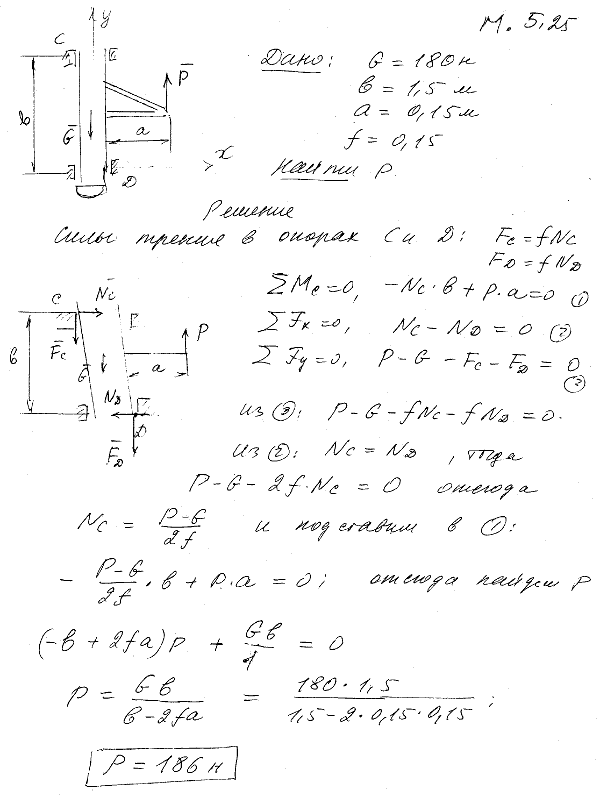 М. 5.25
y
C
P̄
в
Ḡ
a
x
D
Дано: G = 180н
в = 1,5 м
a = 0,15м
f = 0,15
Найти P.
Решение
Силы трения в опорах C и D: Fc = fNc
FD = fND
ΣMc=0, -Nc·в + P·a=0 ①
ΣFx=0, Nc-ND = 0 ②
ΣFy=0, P-G-Fc-FD = 0 ③
C N̄c
P
F̄c
в
Ḡ
a
N̄D
D
F̄D
из ③: P-G-fNc-fND=0.
из ②: Nc = ND , тогда
P-G-2f·Nc = 0 отсюда
Nc = (P-G)/2f и подставим в ①:
- (P-G)/2f · в + P·a = 0; отсюда найдем P
(-в + 2fa)P + Gв/1 = 0
P = Gв/(в-2fa) = 180·1,5/(1,5-2·0,15·0,15) ;
P = 186 н